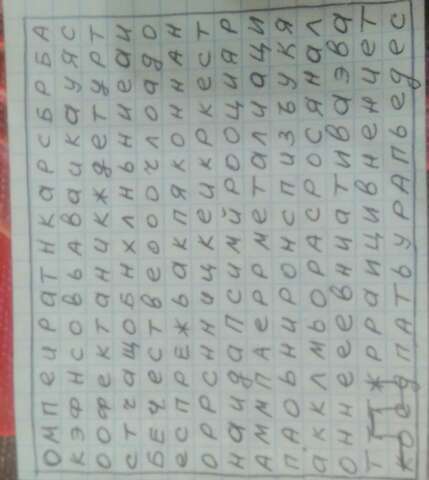 ОМПЕИРАТНКАРСБРБА
КЭФНСОВЬАВАИКАУЯС
ООФЕКТАНИКЖДЕТУРТ
СТЧАЩОБНХЛНЬНИЕАИ
БЕЧЕСТВЕОООЧЛОАДО
ЕСПРЕЖЬАКЛЯКОННАН
ОРРСННИЦКЕИКРКЕСТ
НАИДАПСИМЙРООЦИАР
АММПАЕРРМЕТАЛИАЦИ
ПАОЬНИРОНСПИЗЪУКЯ
АККЛМЬОРАСРОСЯНАЛ
ОННЕЕЕВНИАТИВАЭВА
ЖРРАИЦИВНЕНЦЕТ
КОЕДПАТЬУРАПЬЕДЕС